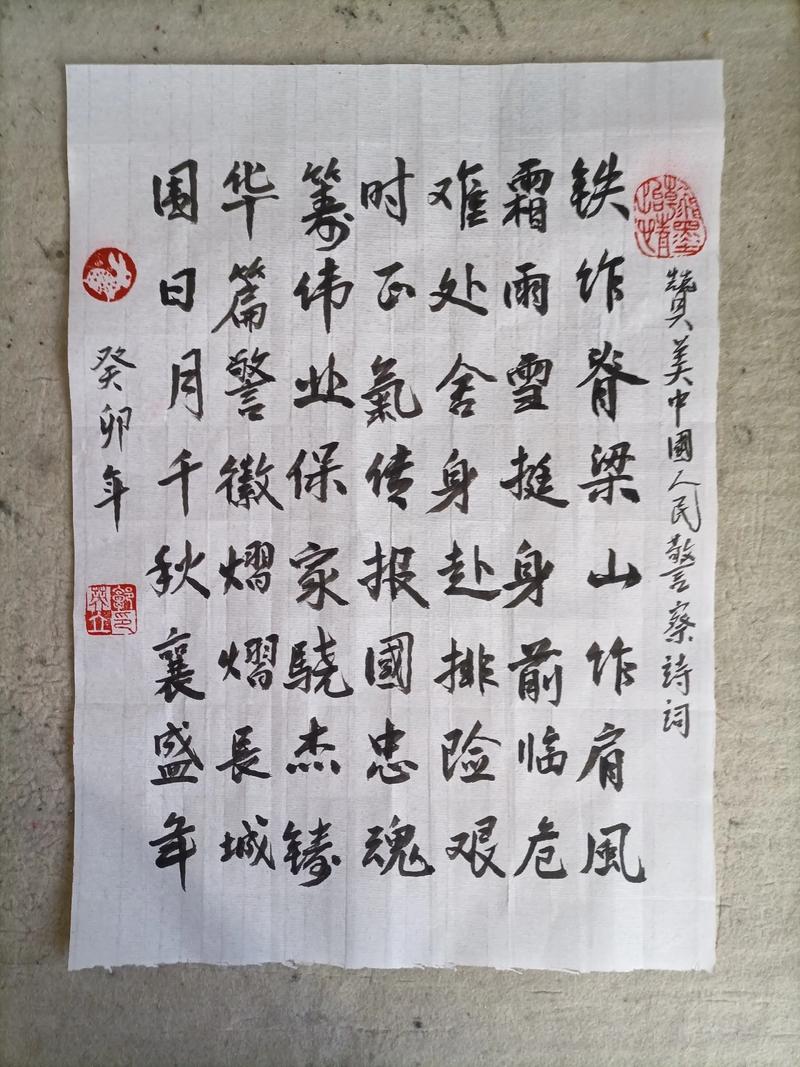 贊美中國人民警察詩詞
铁作脊梁山作肩風
霜雨雪挺身前临危
难处舍身赴排险艰
时正氣传报國忠魂
筹伟业保家驍杰铸
华篇警徽熠熠長城
围日月千秋襄盛年
癸卯年